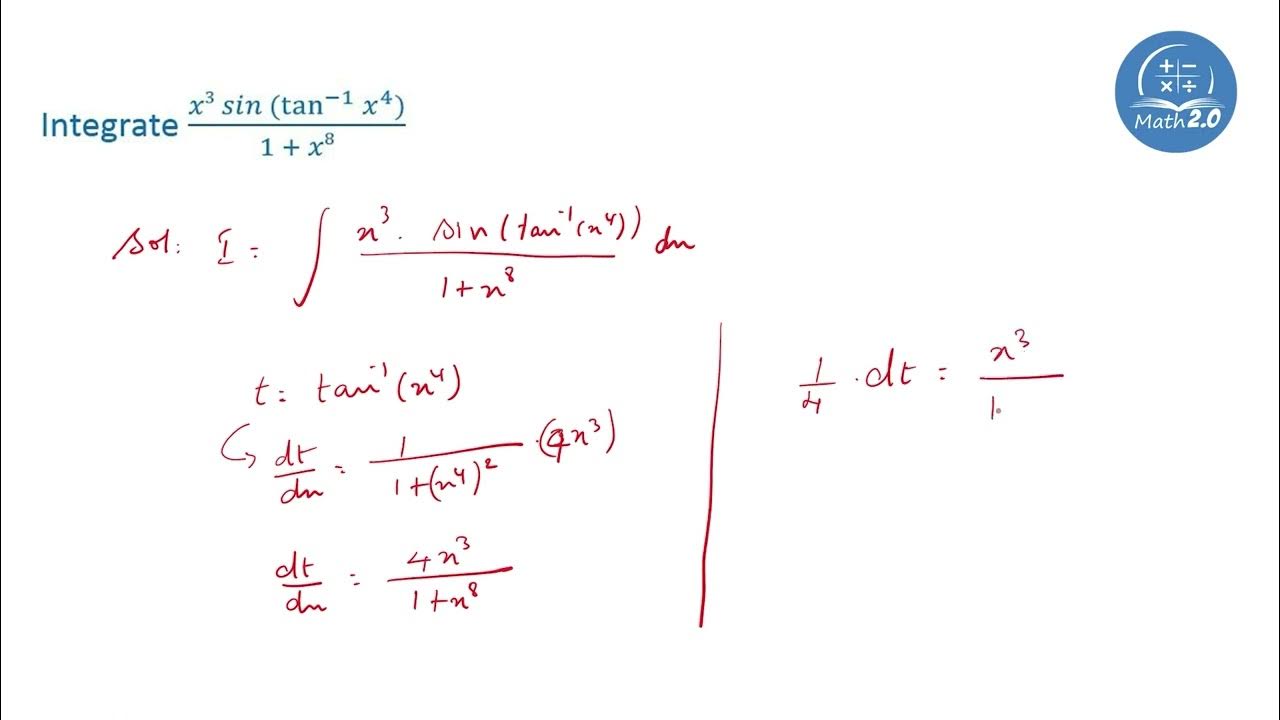 Math 2.0
Integrate x³ sin (tan⁻¹ x⁴) / 1 + x⁸
Sol: I = ∫ x³ . sin(tan⁻¹(x⁴)) / 1+x⁸ dx
t = tan⁻¹(x⁴)
dt/dx = 1 / 1+(x⁴)² . (4x³)
dt/dx = 4x³ / 1+x⁸
1/4 . dt = x³ / 1